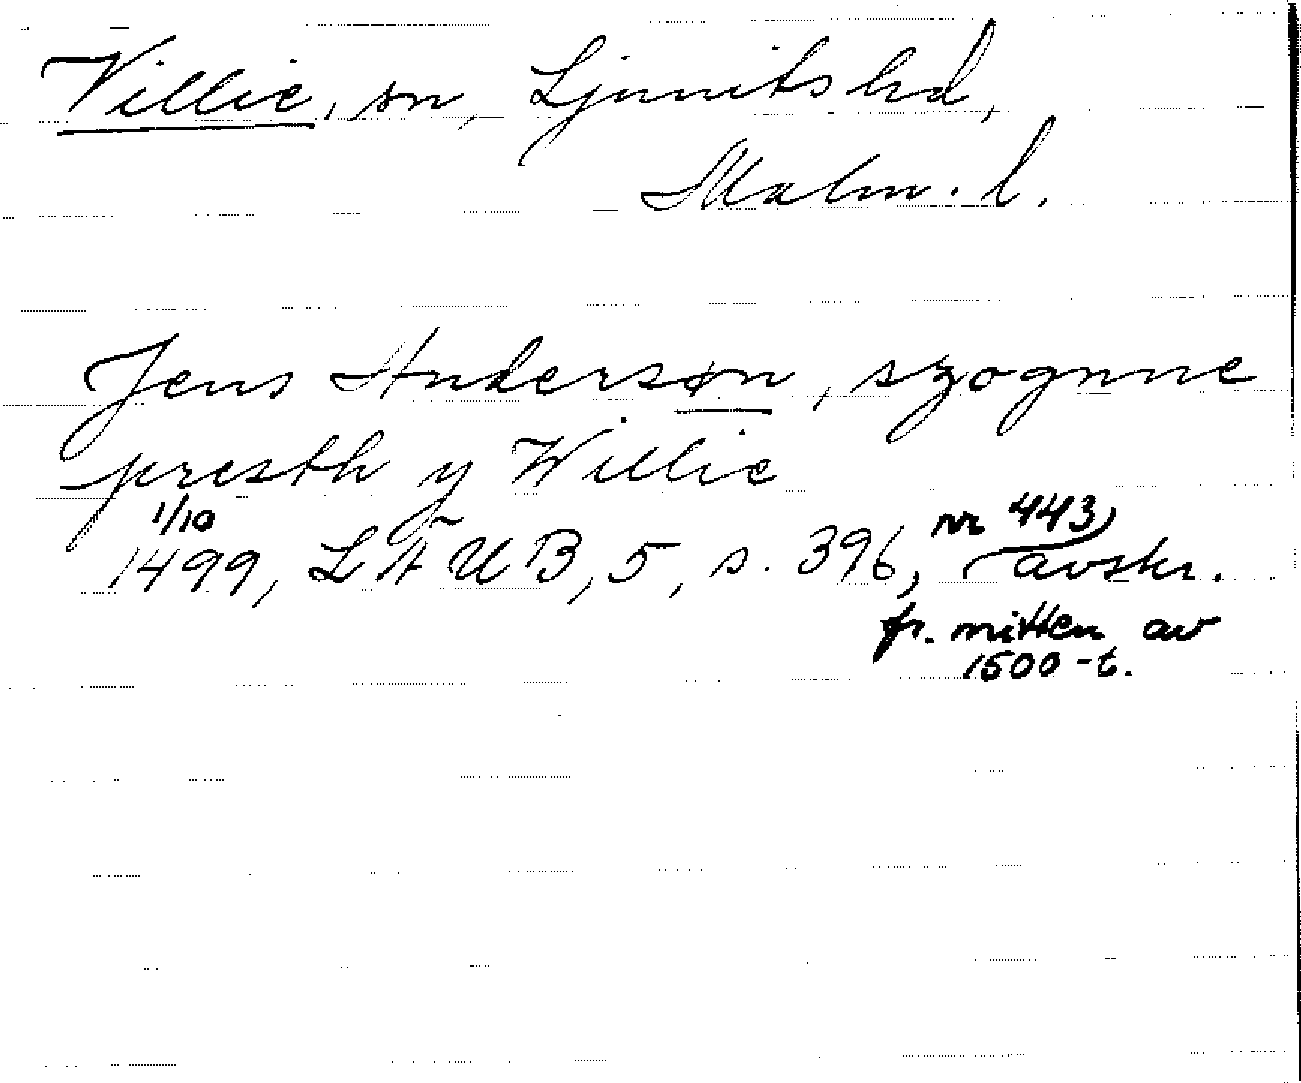 Villie, sn, Ljunits hd,
Malm. l.
Jens Andersøn, szognne
presth y Willie
1/10
1499, LÄUB, 5, s. 396, nr 443, avskr.
fr. mitten av
1500-t.